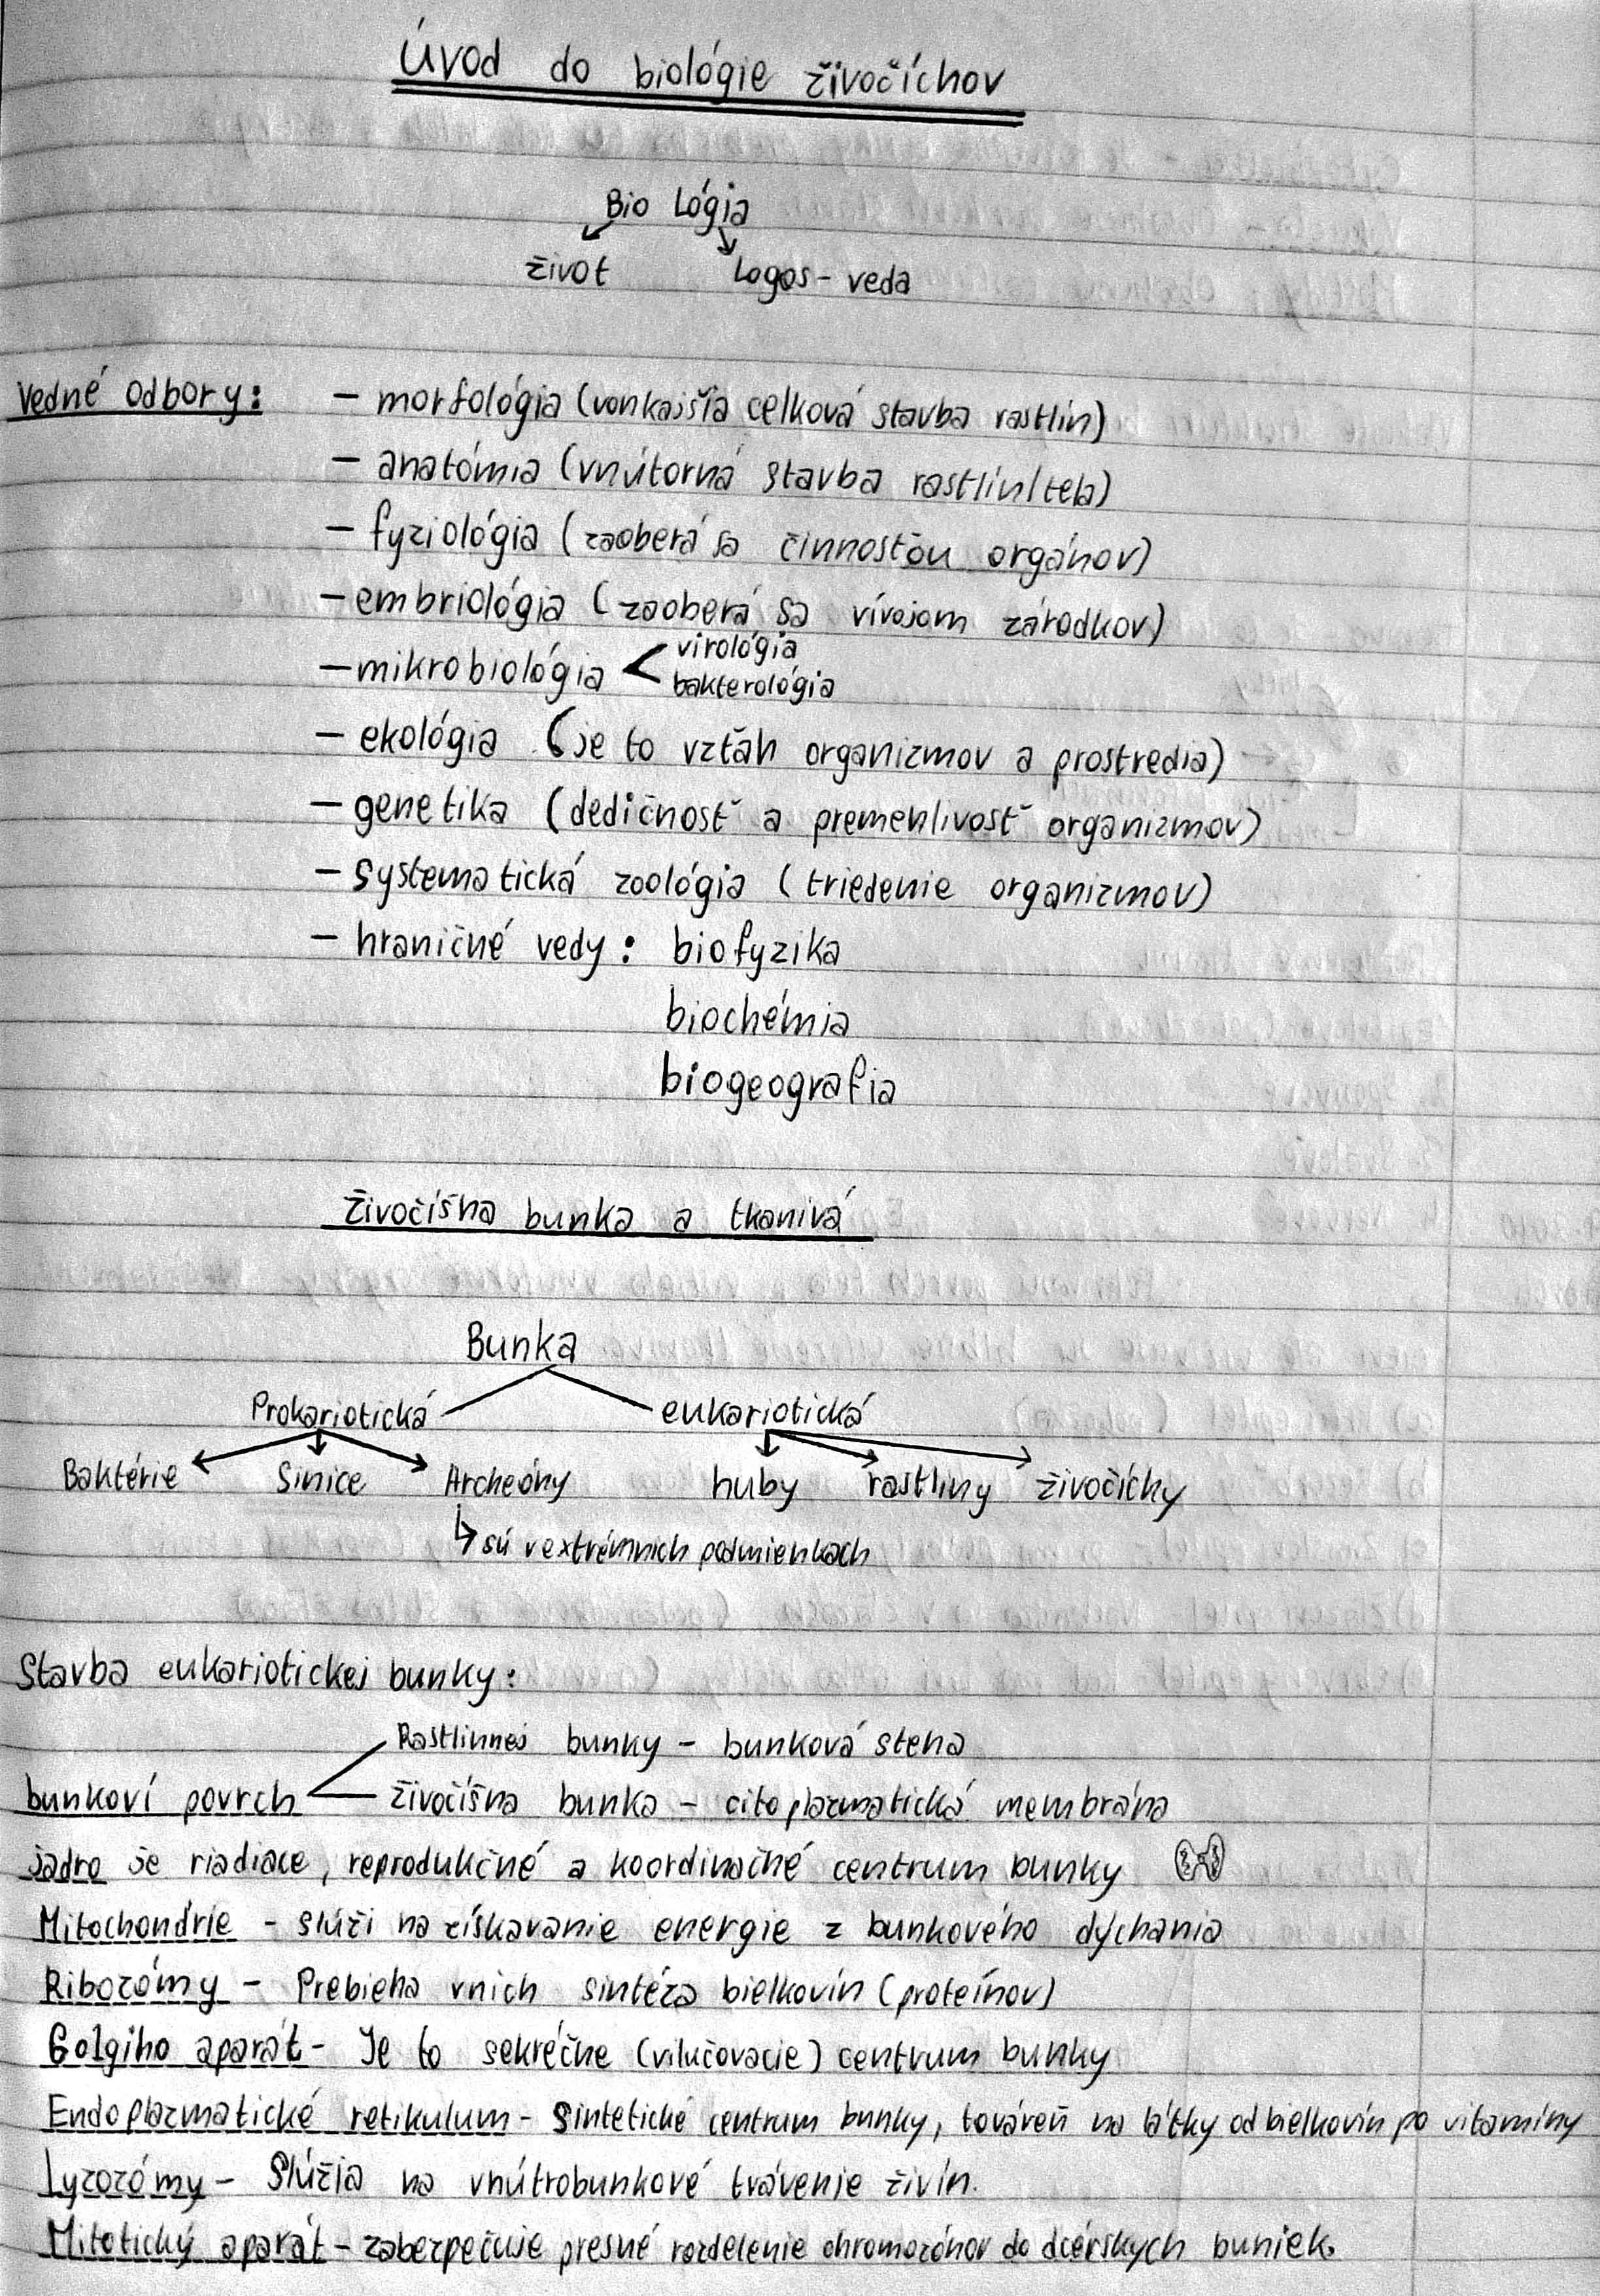 Úvod do biológie živočíchov
Bio Lógia
život Logos - veda
Vedné odbory: - morfológia (vonkajšia celková stavba rastlín)
- anatómia (vnútorná stavba rastlín/tela)
- fyziológia (zaoberá sa činnosťou orgánov)
- embriológia (zaoberá sa vívojom zárodkov)
- mikrobiológia < virológia
bakterológia
- ekológia (je to vzťah organizmov a prostredia)
- genetika (dedičnosť a premenlivosť organizmov)
- systematická zoológia (triedenie organizmov)
- hraničné vedy: biofyzika
biochémia
biogeografia
Živočíšna bunka a tkanivá
Bunka
Prokariotická eukariotická
Baktérie Sinice Archeóny huby rastliny živočíchy
sú v extrémnich podmienkach
Stavba eukariotickej bunky:
Rastlinnej bunky - bunková stena
bunkoví povrch živočíšna bunka - citoplazmatická membrána
jadro je riadiace, reprodukčné a koordinačné centrum bunky
Mitochondrie - slúži na získavanie energie z bunkového dýchania
Ribozómy - Prebieha vnich sintéza bielkovín (proteínov)
Golgiho aparát - Je to sekréčne (vilučovacie) centrum bunky
Endoplazmatické retikulum - sintetické centrum bunky, továreň na látky od bielkovín po vitamíny
Lyzozómy - Slúžia na vnútrobunkové trávenie živín.
Mitotický aparát - zabezpečuje presné rozdelenie chromozónov do dcérskych buniek.